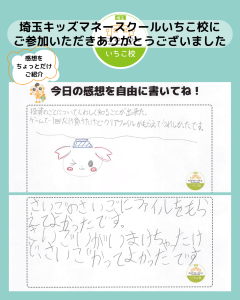 埼玉キッズマネースクールいちご校に
ご参加いただきありがとうございました
いちご校
感想を
ちょっとだけ
ご紹介
今日の感想を自由に書いてね!
投資のことについてくわしく知ることが出来た。
ゲームで1回だけ負けたけどクリアファイルがもらえてうれしかったです
さいごのさいごにファイルをもら
えてよかったです。
いちご
いまけちゃったけ
どさいごかってよかったです